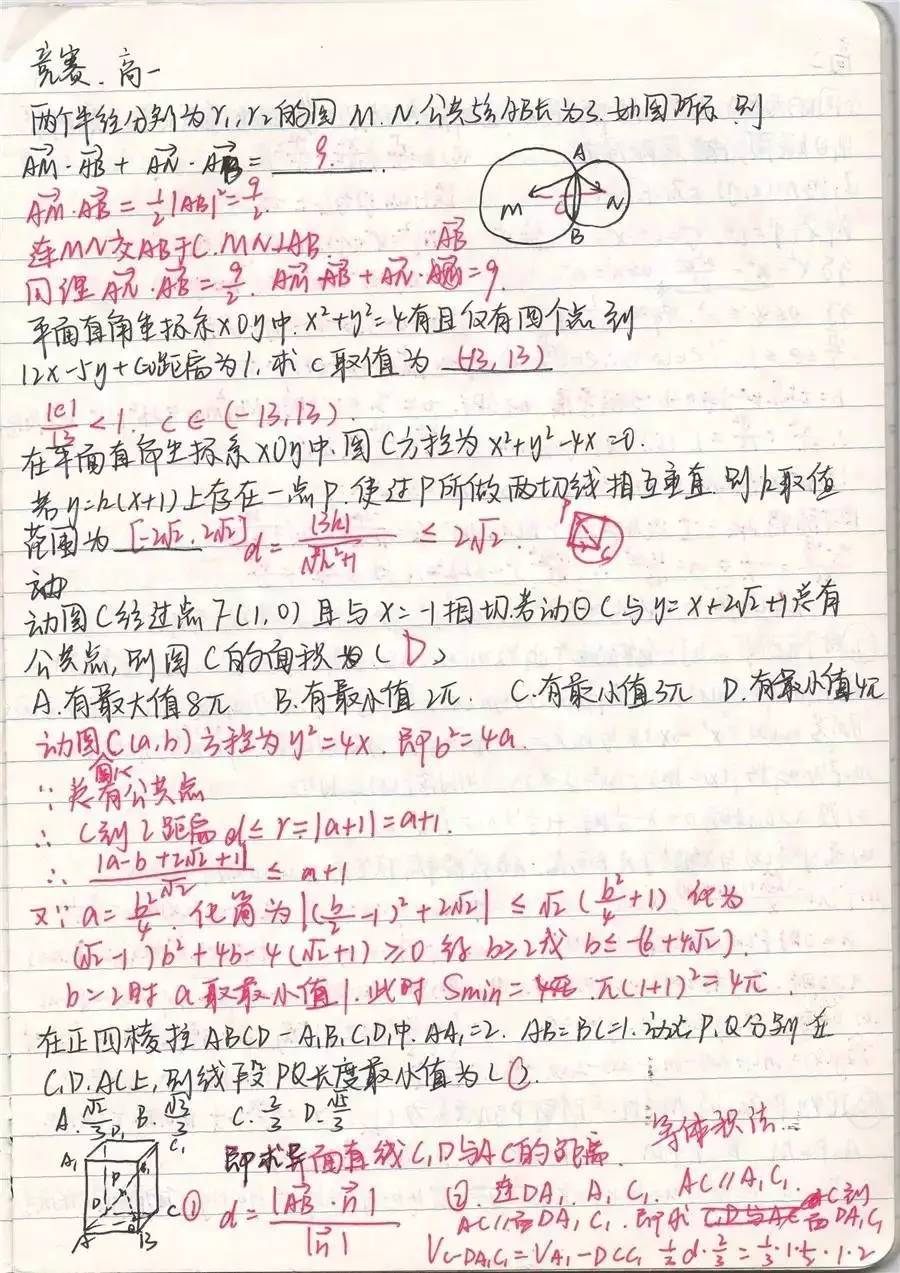 竞赛.高一
两个半径分别为r₁,r₂的圆M.N.公共弦AB长为3.如图所示,则
AM·AB + AN·AB = 9.
AM·AB = ½|AB|² = 9/2.
连MN交AB于C.MN⊥AB
AB
同理AN·AB = 9/2. AM·AB + AN·AB = 9.
A
M
C
N
B
平面直角坐标系xOy中.x²+y²=4有且仅有四个点到
12x-5y+c=0距离为1.求c取值为 (-13,13)
|c|/13 < 1. c∈(-13,13).
在平面直角坐标系xOy中.圆C方程为x²+y²-4x=0.
若y=k(x+1)上存在一点P.使过P所做两切线相互垂直.则k取值
范围为 [-2√2,2√2] d = |3k|/√k²+1 ≤ 2√2.
P
C
动圆C经过点F(1,0)且与x=-1相切.若动⊙C与y=x+2√2+1总有
公共点,则圆C的面积为(D)
A.有最大值8π B.有最小值2π. C.有最小值3π D.有最小值4π
动圆C(a,b)方程为y²=4x.即b²=4a.
∵总有公共点
∴C到l距离d≤r=|a+1|=a+1.
∴|a-b+2√2+1|/√2 ≤ a+1
又∵a=b²/4. 化简为|(b/2-1)²+2√2| ≤ √2(b²/4+1) 化为
(√2-1)b²+4b-4(√2+1)≥0 得 b≥2或b≤-(6+4√2).
b=2时 a取最小值1.此时Smin= π(1+1)²=4π.
在正四棱柱ABCD-A₁B₁C₁D₁中.AA₁=2. AB=BC=1.动点P,Q分别在
C₁D.AC上,则线段PQ长度最小值为( ).
A.√2/3 B.√3/3 C.2/3 D.√5/3
D₁
C₁
A₁
B₁
P
D
C
Q
A
B
等体积法.
即求异面直线C₁D与AC的距离.
① d = |AB·n|/|n|
② 连DA₁,A₁C₁. AC∥A₁C₁.
AC∥面DA₁C₁.即求 C到面DA₁C₁
V C-DA₁C₁ = V A₁-DCC₁ ⅓d·3/2 = ⅓·1·½·1·2